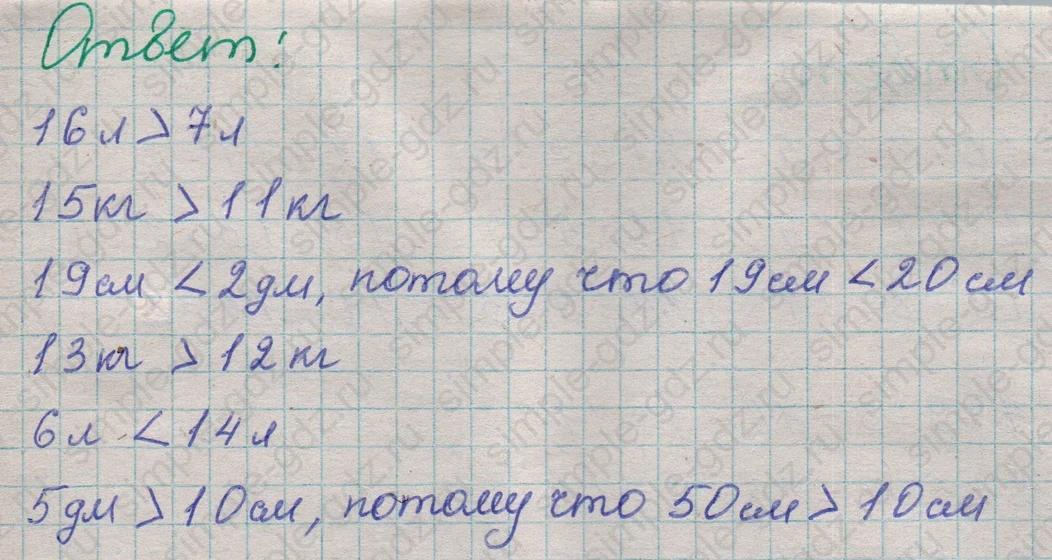 Ответ:
16л > 7л
15кг > 11кг
19см < 2дм, потому что 19см < 20см
13кг > 12кг
6л < 14л
5дм > 10см, потому что 50см > 10см